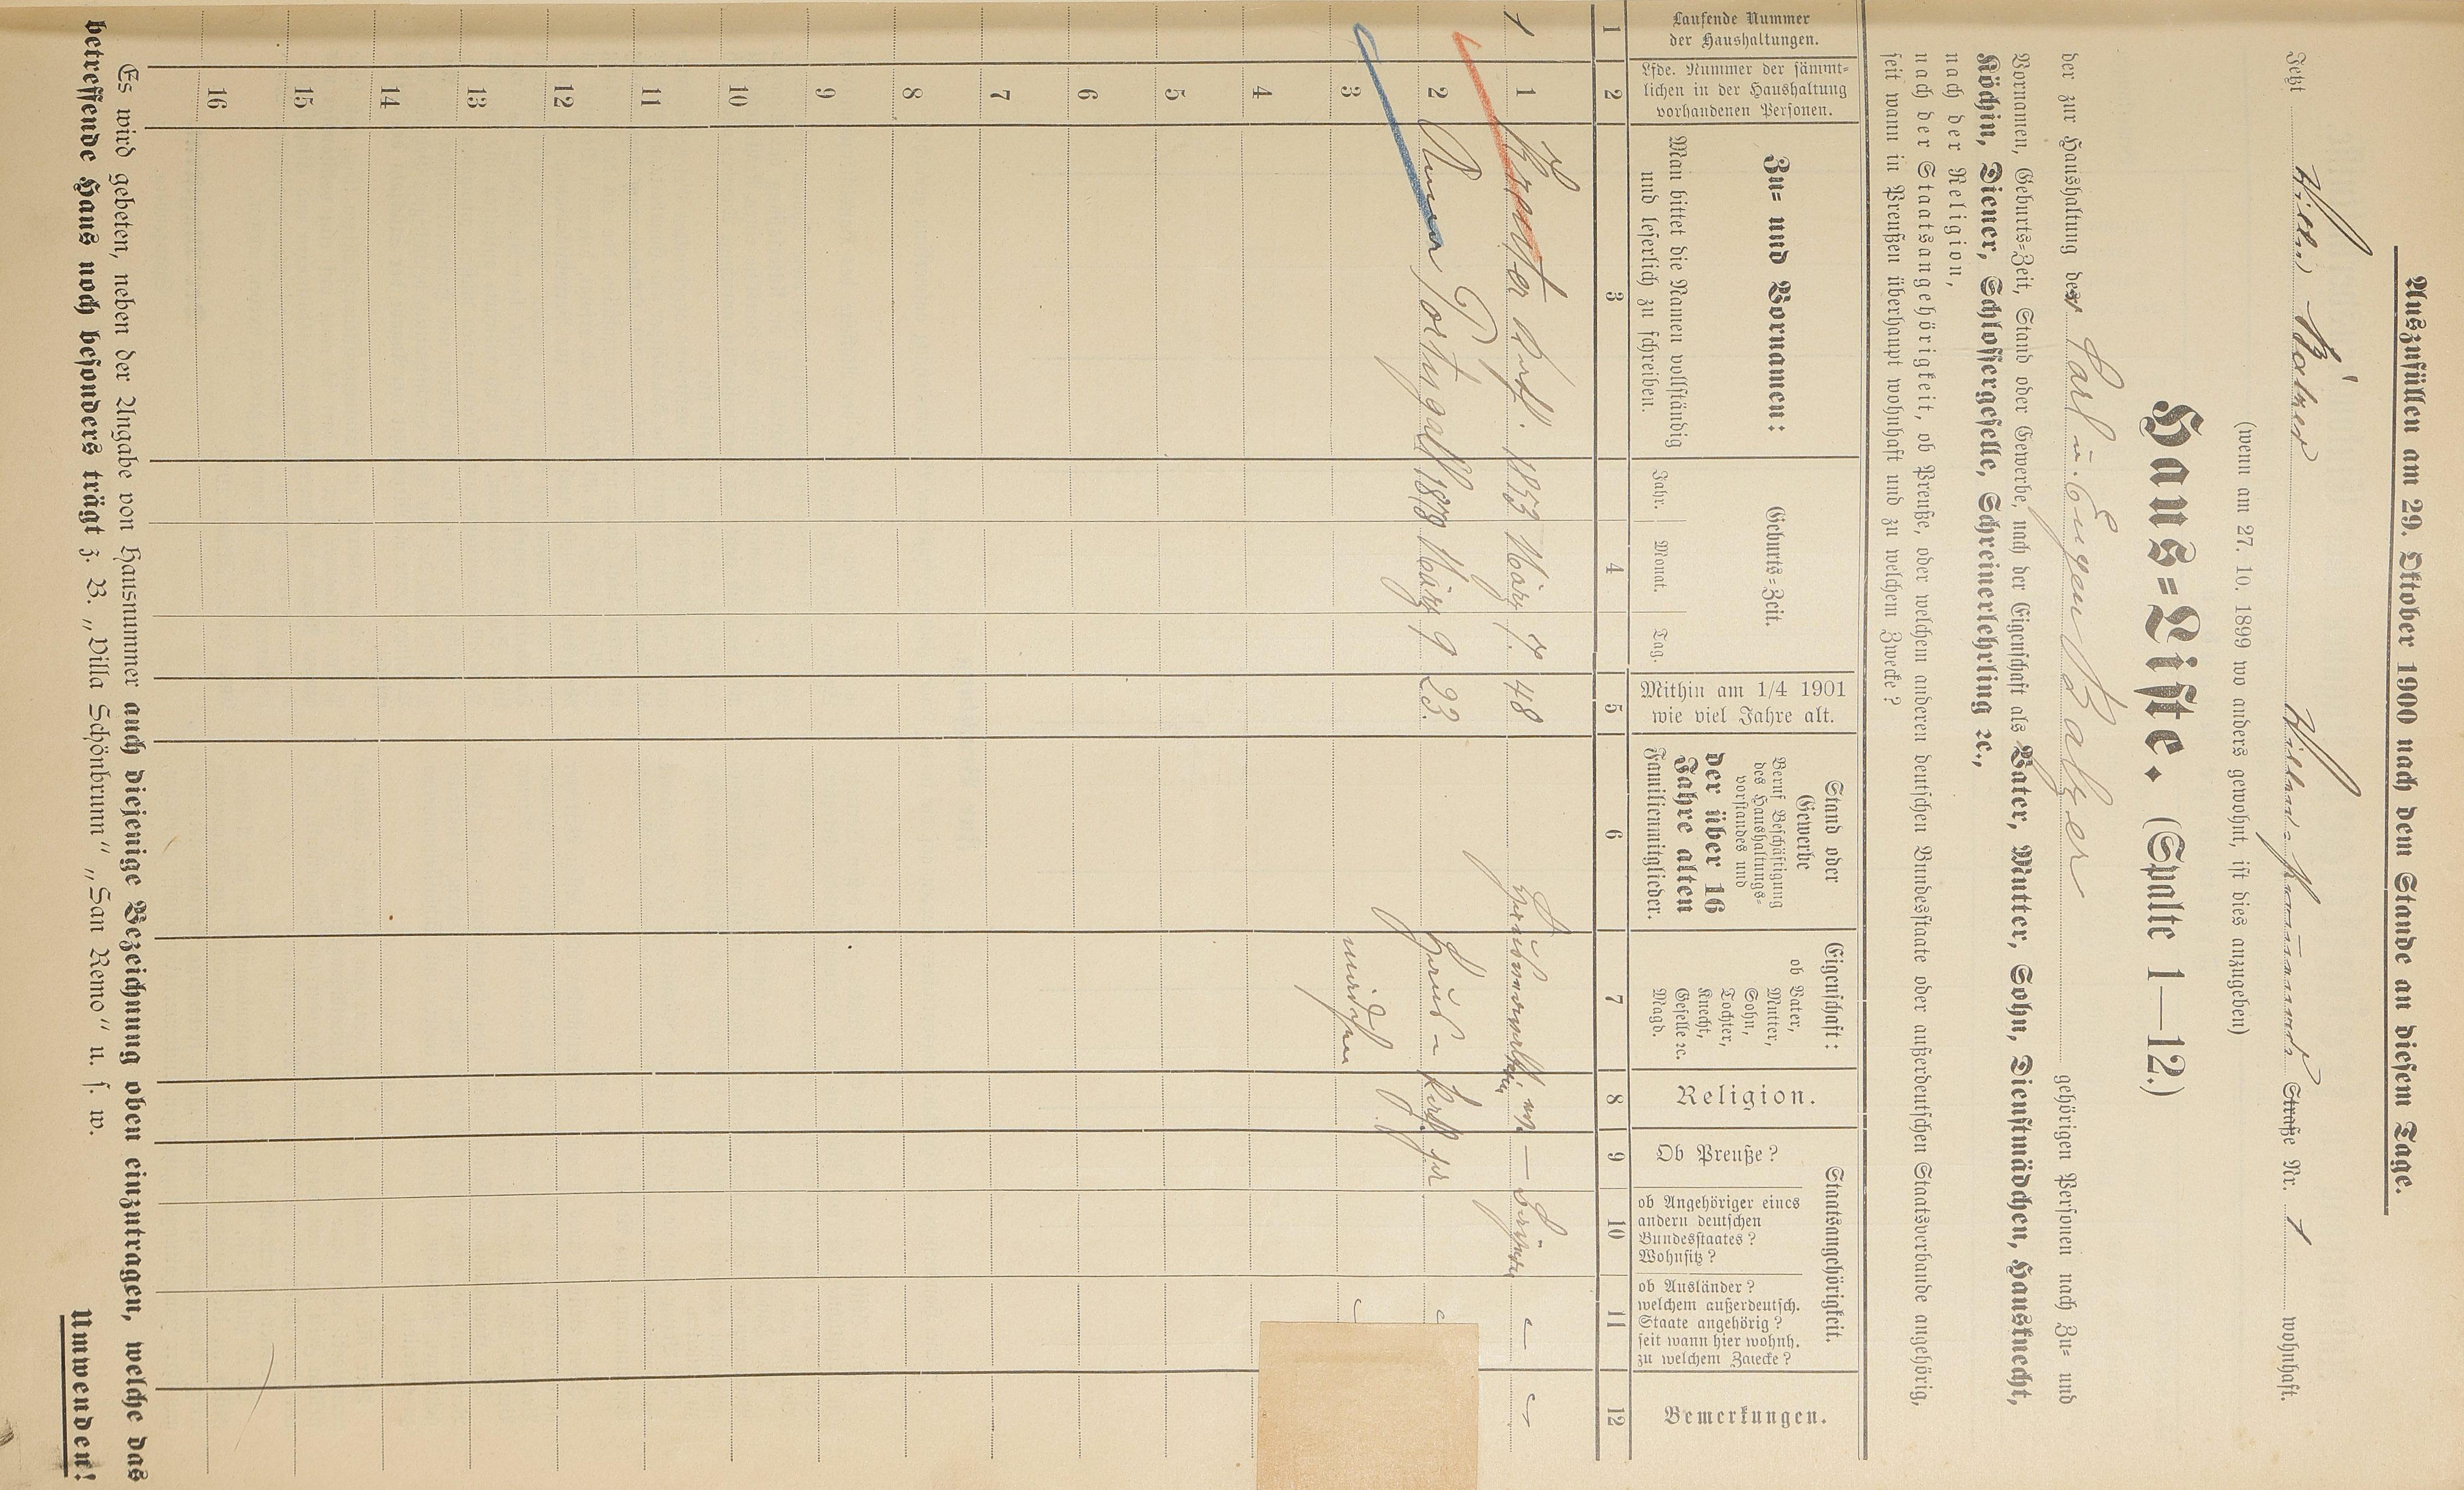 Auszufüllen am 29. Oktober 1900 nach dem Stande an diesem Tage.
Jetzt Villa Balzer Straße Nr. 1 wohnhaft.
(wenn am 27. 10. 1899 wo anders gewohnt, ist dies anzugeben)
Haus=Liste. (Spalte 1—12.)
der zur Haushaltung der Carl u. Eugen Balzer gehörigen Personen nach Zu= und
Vornamen, Geburts=Zeit, Stand oder Gewerbe, nach der Eigenschaft als Vater, Mutter, Sohn, Dienstmädchen, Hausknecht,
Köchin, Diener, Schlossergeselle, Schreinerlehrling ꝛc.,
nach der Religion,
nach der Staatsangehörigkeit, ob Preuße, oder welchem anderen deutschen Bundesstaate oder außerdeutschen Staatsverbande angehörig,
seit wann in Preußen überhaupt wohnhaft und zu welchem Zwecke?
Laufende Nummer
der Haushaltungen.
Lfde. Nummer der sämmt=
lichen in der Haushaltung
vorhandenen Personen.
Zu= und Vornamen:
Man bittet die Namen vollständig
und leserlich zu schreiben.
Geburts=Zeit.
Jahr. Monat. Tag.
Mithin am 1/4 1901
wie viel Jahre alt.
Stand oder
Gewerbe
Beruf Beschäftigung
des Haushaltungs=
vorstandes und
der über 16
Jahre alten
Familienmitglieder.
Eigenschaft:
ob Vater,
Mutter,
Sohn,
Tochter,
Knecht,
Geselle ꝛc.
Magd.
Religion.
Staatsangehörigkeit.
Ob Preuße?
ob Angehöriger eines
andern deutschen
Bundesstaates?
Wohnsitz?
ob Ausländer?
welchem außerdeutsch.
Staate angehörig?
seit wann hier wohnh.
zu welchem Zwecke?
Bemerkungen.
1 2 3 4 5 6 7 8 9 10 11 12
1 1 1853 März 7. 48 —
2 Anna Portugall 1878 März 9 23. Haus-
3 mädchen
4
5
6
7
8
9
10
11
12
13
14
15
16
Es wird gebeten, neben der Angabe von Hausnummer auch diejenige Bezeichnung oben einzutragen, welche das
betreffende Haus noch besonders trägt z. B. „Villa Schönbrunn“ „San Remo“ u. s. w.
Umwenden!